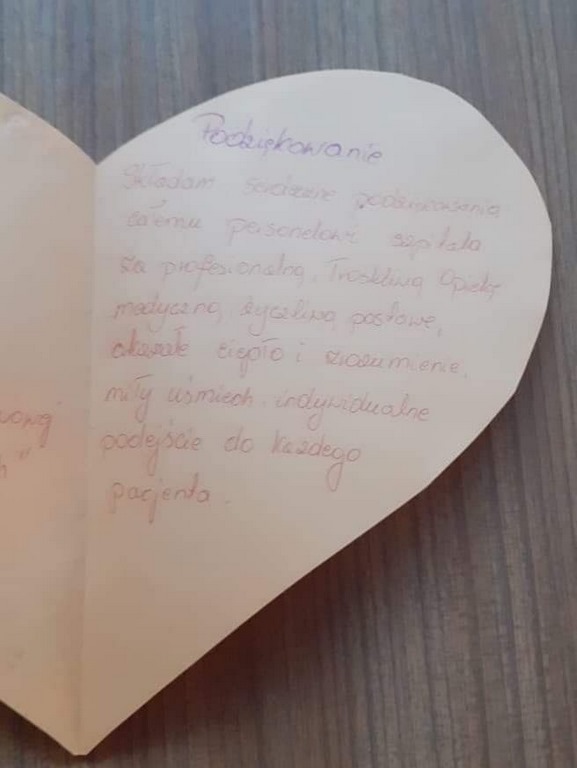 Podziękowanie
Składam serdeczne podziękowania
całemu personelowi szpitala
za profesjonalną, Troskliwą Opiekę
medyczną, życzliwą postawę,
okazałe ciepło i zrozumienie,
miły uśmiech, indywidualne
podejście do każdego
pacjenta.